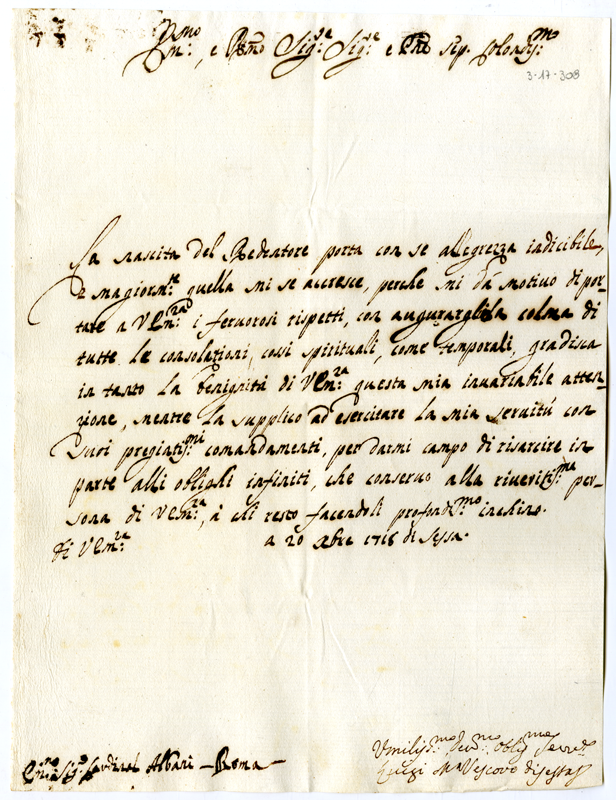 Em.mo e Rmo Sig.re Sig.re e Pne sep. Colendis.mo
3-17-308
La nascita del Redentore porta con se allegrezza indicibile,
e magiorm.te quella mi se accresce, perche mi dà motivo di por-
tare a VEm.za i feruorosi rispetti, con augurargliela colma di
tutte le consolationi, cossì spirituali, come temporali, gradisca
in tanto la benignità di VEm.za questa mia inuariabile atten-
zione, mentre la supplico ad esercitare la mia seruitù con
suoi pregiatis.mi comandamenti, per darmi campo di risarcire in
parte alli oblighi infiniti, che conseruo alla riueritis.ma per-
sona di VEm.za, à chi resto facendoli profondis.mo inchino.
di VEm.za a 20 Xbre 1716 di Sessa.
Em.mo Sig.r Cardinal Albani - Roma -
Vmilis.mo deu.mo oblig.mo Seru.re
Luigi Ma Vescovo di Sessa